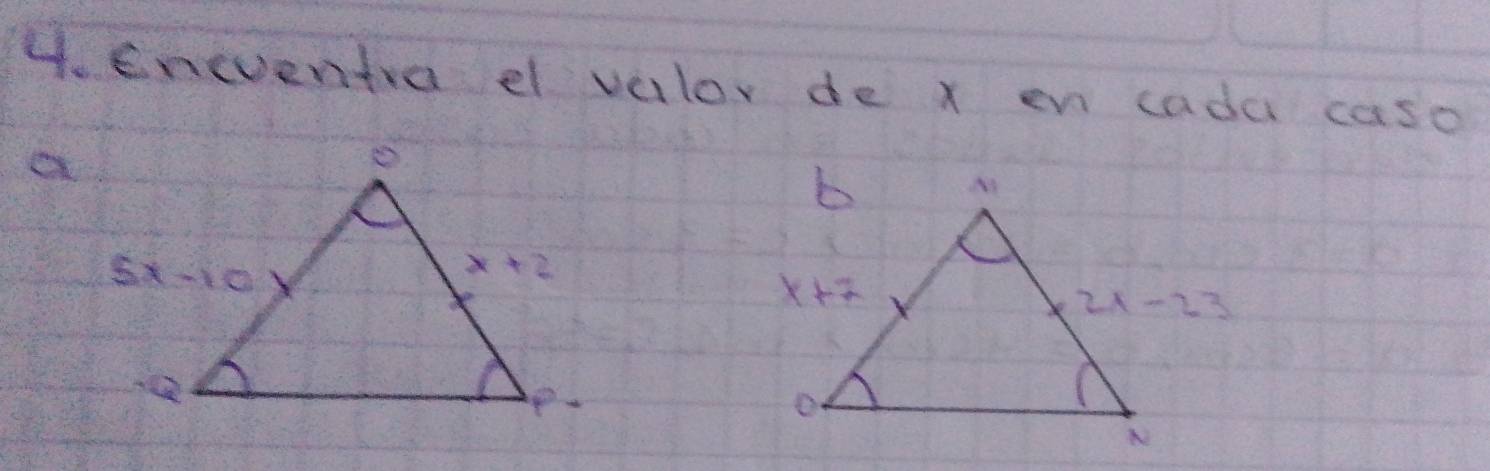 4. Encuentra el valor de x en cada caso
a
O
5x-10
x+2
Q
P.
b
M
x+7
2x-23
O
N